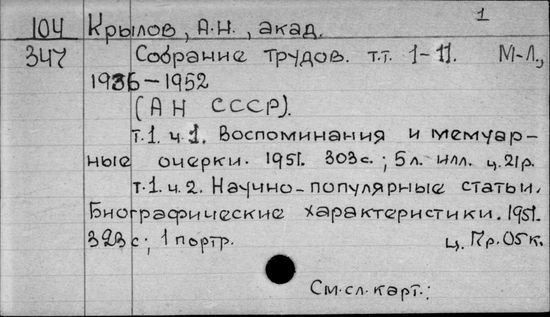 1
104 Крылов, А.Н., акад.
347 Собрание трудов. т.т. 1-11. М-Л.,
1936-1952
(АН СССР).
т.1. ч.1. Воспоминания и мемуар-
ные очерки. 1951. 303с.; 5л. илл. ц.21р.
т.1. ч.2. Научно-популярные статьи.
Биографические характеристики. 1951.
323с; 1 портр. ц. 17р.05к.
См.сл.карт.: